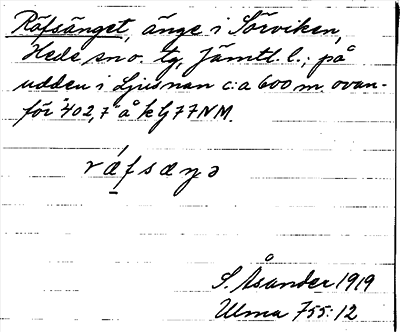 Räfsänget, änge i Sörviken,
Hede sn o. tg, Jämtl. l.; på
udden i Ljusnan c:a 600 m ovan-
för "402,7" å kbl 77 NM.
ræ̀fsæŋə
S. Åsander 1919
Ulma 755:12